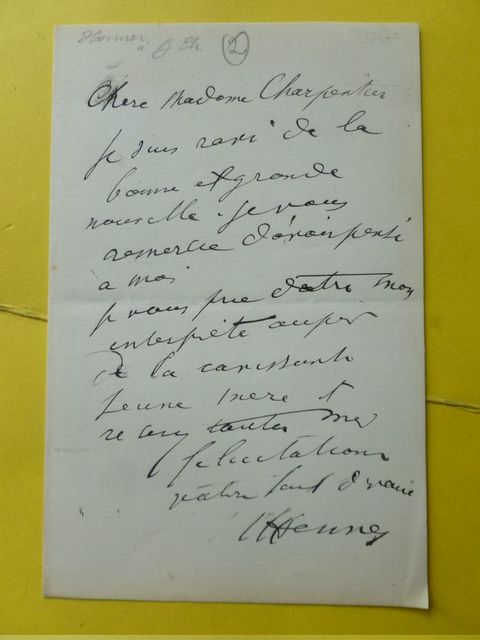 Henner à G. Ch 2
Chere Madame Charpentier
Je suis ravi de la
bonne et grande
nouvelle. Je vous
remercie d'avoir pensé
a moi
Je vous prie d'etre mon
interprète auprès
de la ravissante
jeune mere et
recevez toutes mes
felicitations
votre tout devoué
JJHenner